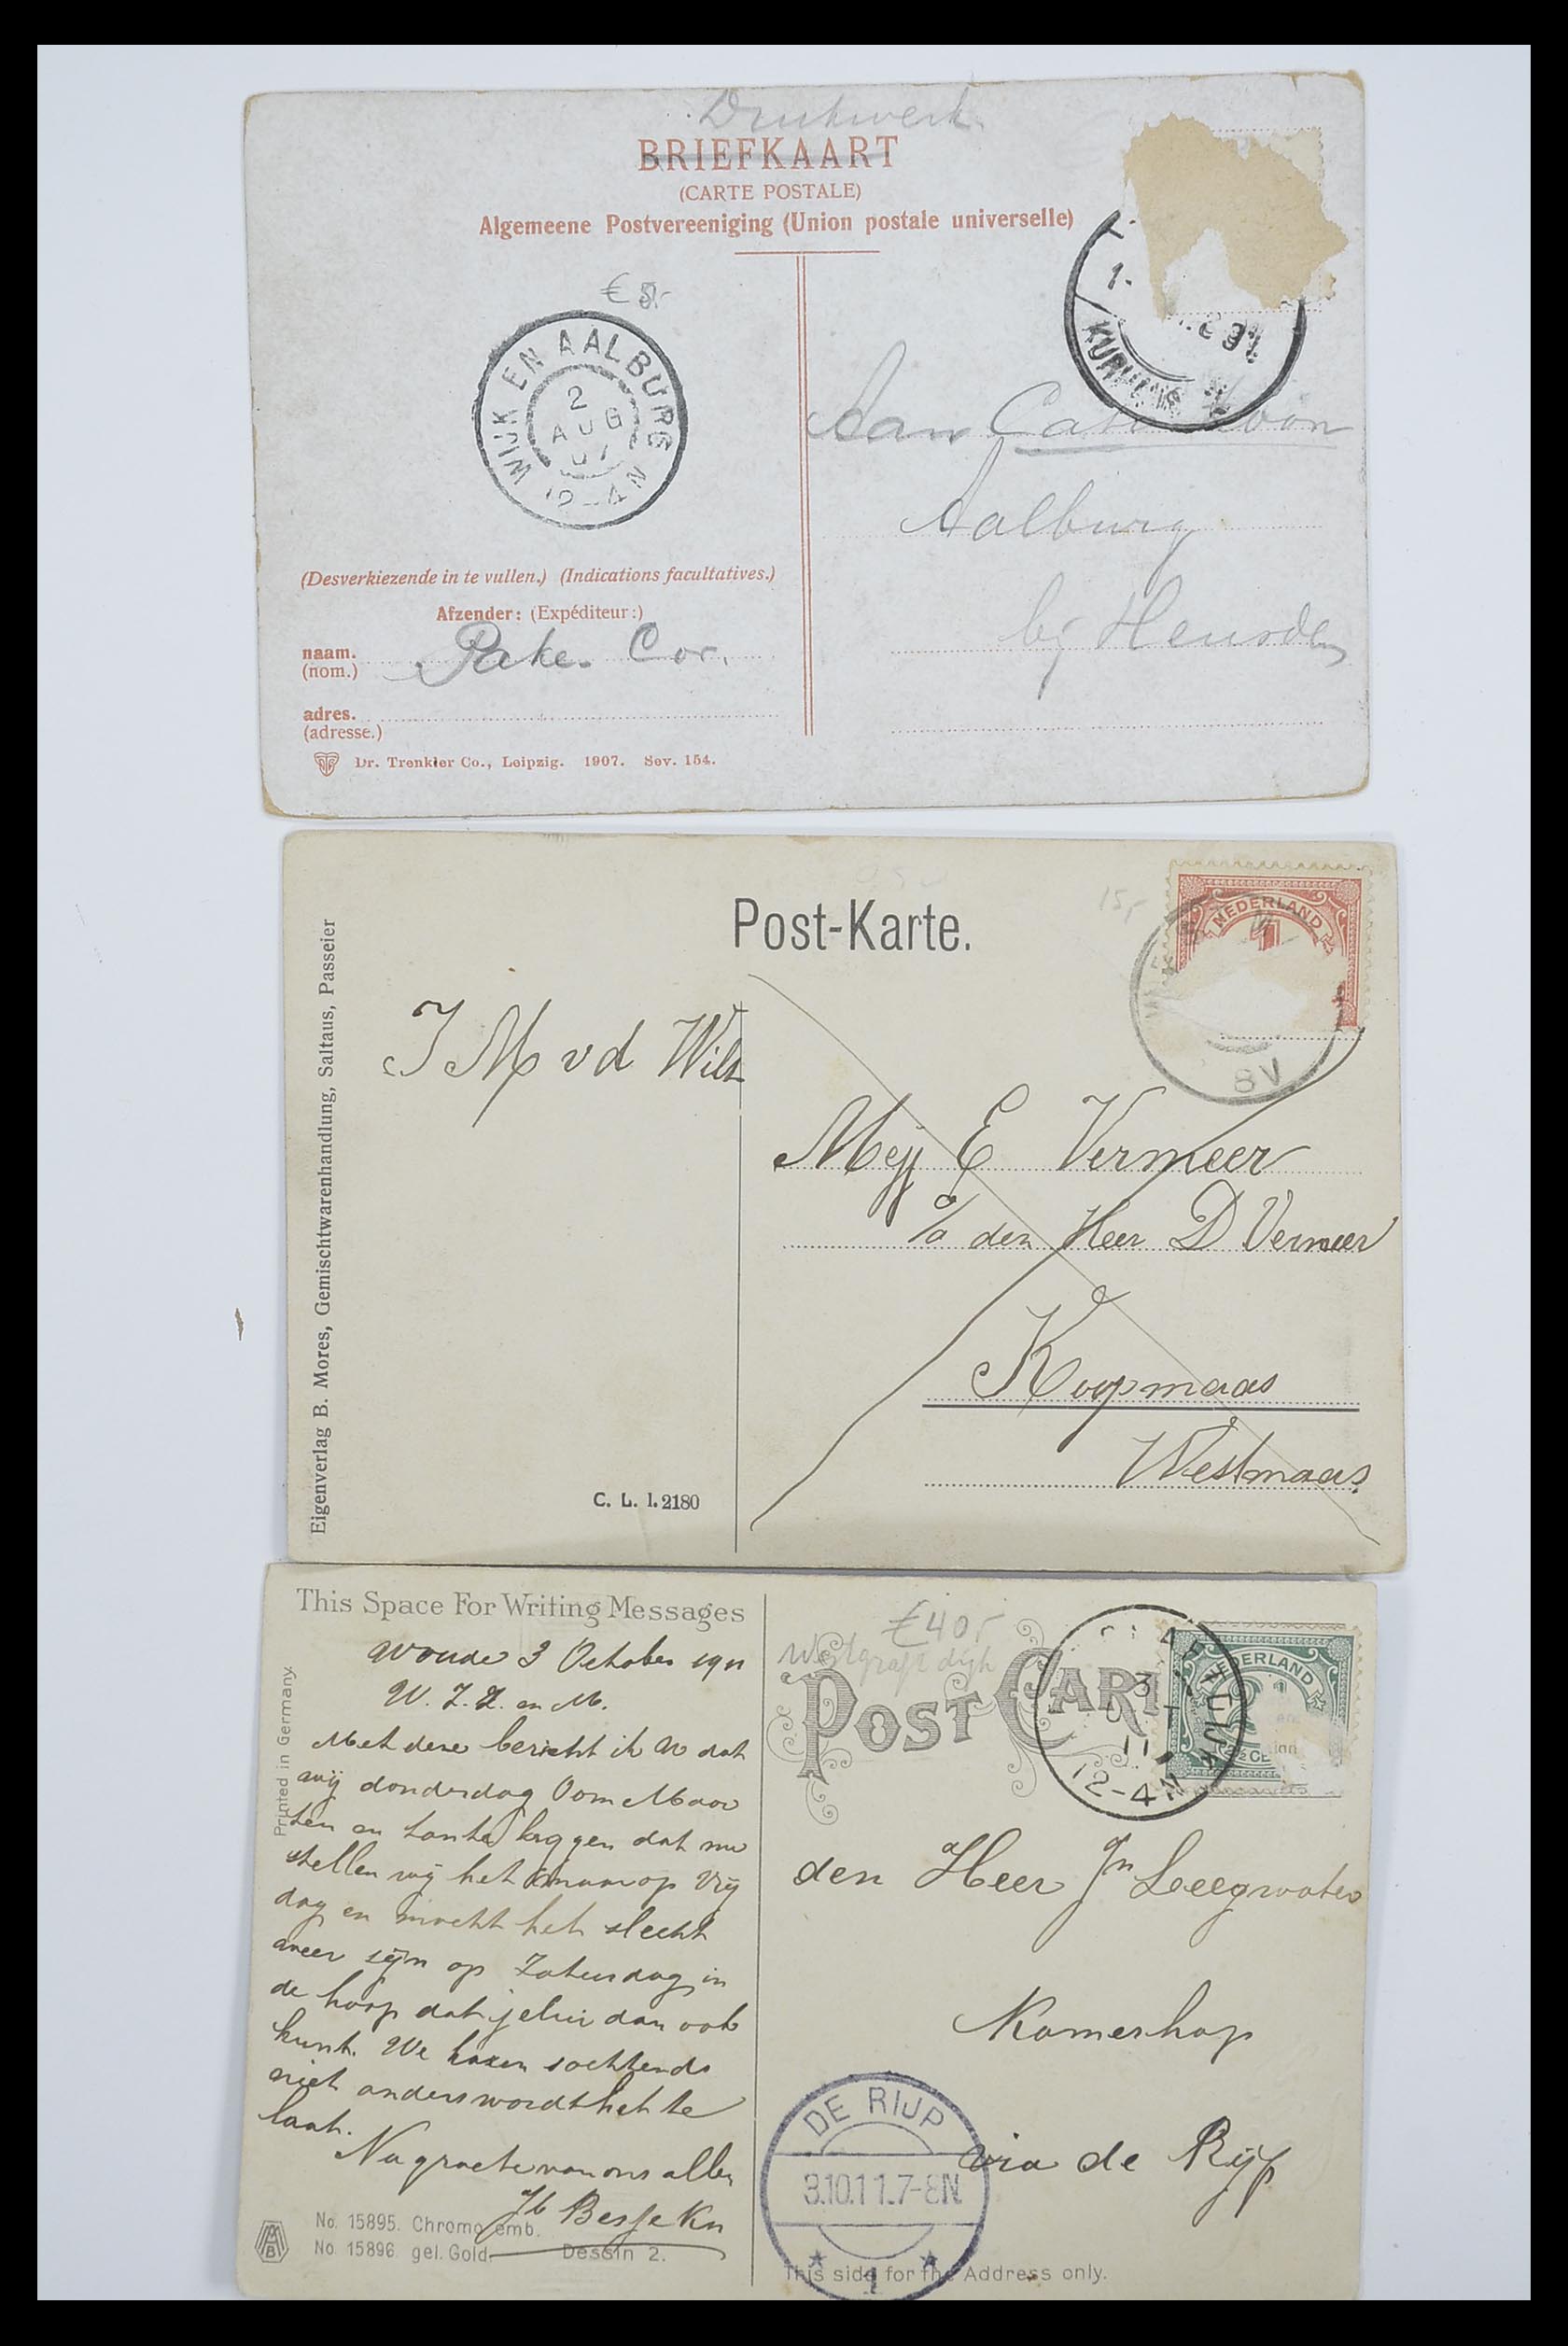 Drukwerk
BRIEFKAART
(CARTE POSTALE)
Algemeene Postvereeniging (Union postale universelle)
€
WIJK EN AALBURG
2
AUG
07
12-4N
1.
KURHAUS
Aan
Aalburg
bij Heusden
(Desverkiezende in te vullen.) (Indications facultatives.)
Afzender: (Expéditeur:)
naam.
(nom.)
Cor.
adres.
(adresse.)
Dr. Trenkler Co., Leipzig. 1907. Sev. 154.
Post-Karte.
15,-
NEDERLAND
1
8V
Eigenverlag B. Mores, Gemischtwarenhandlung, Saltaus, Passeier
J M v d Wilt
Mej E Vermeer
%a den Heer D Vermeer
Westmaas
C. L. I. 2180
This Space For Writing Messages
Printed in Germany.
Woude 3 October 1911
W. Z. Z. en M.
Met deze bericht ik U dat
wij donderdag Oom Maar
ten en tante krygen dat nu
stellen wij het maar op Vrij
dag en mocht het slecht
weer zijn op Zaturdag in
de hoop dat jelui dan ook
kunt. We komen sochtends
niet anders wordt het te
laat.
Na groete van ons allen
No. 15895. Chromo emb.
No. 15896. gel. Gold Dessin 2.
€40,-
Westgraftdijk
POST CARD
NEDERLAND
3
11
12-4N
den Heer Jn Leegwater
Kamerhop
via de Rijp
DE RIJP
3.10.11.7-8N
1
This side for the Address only.